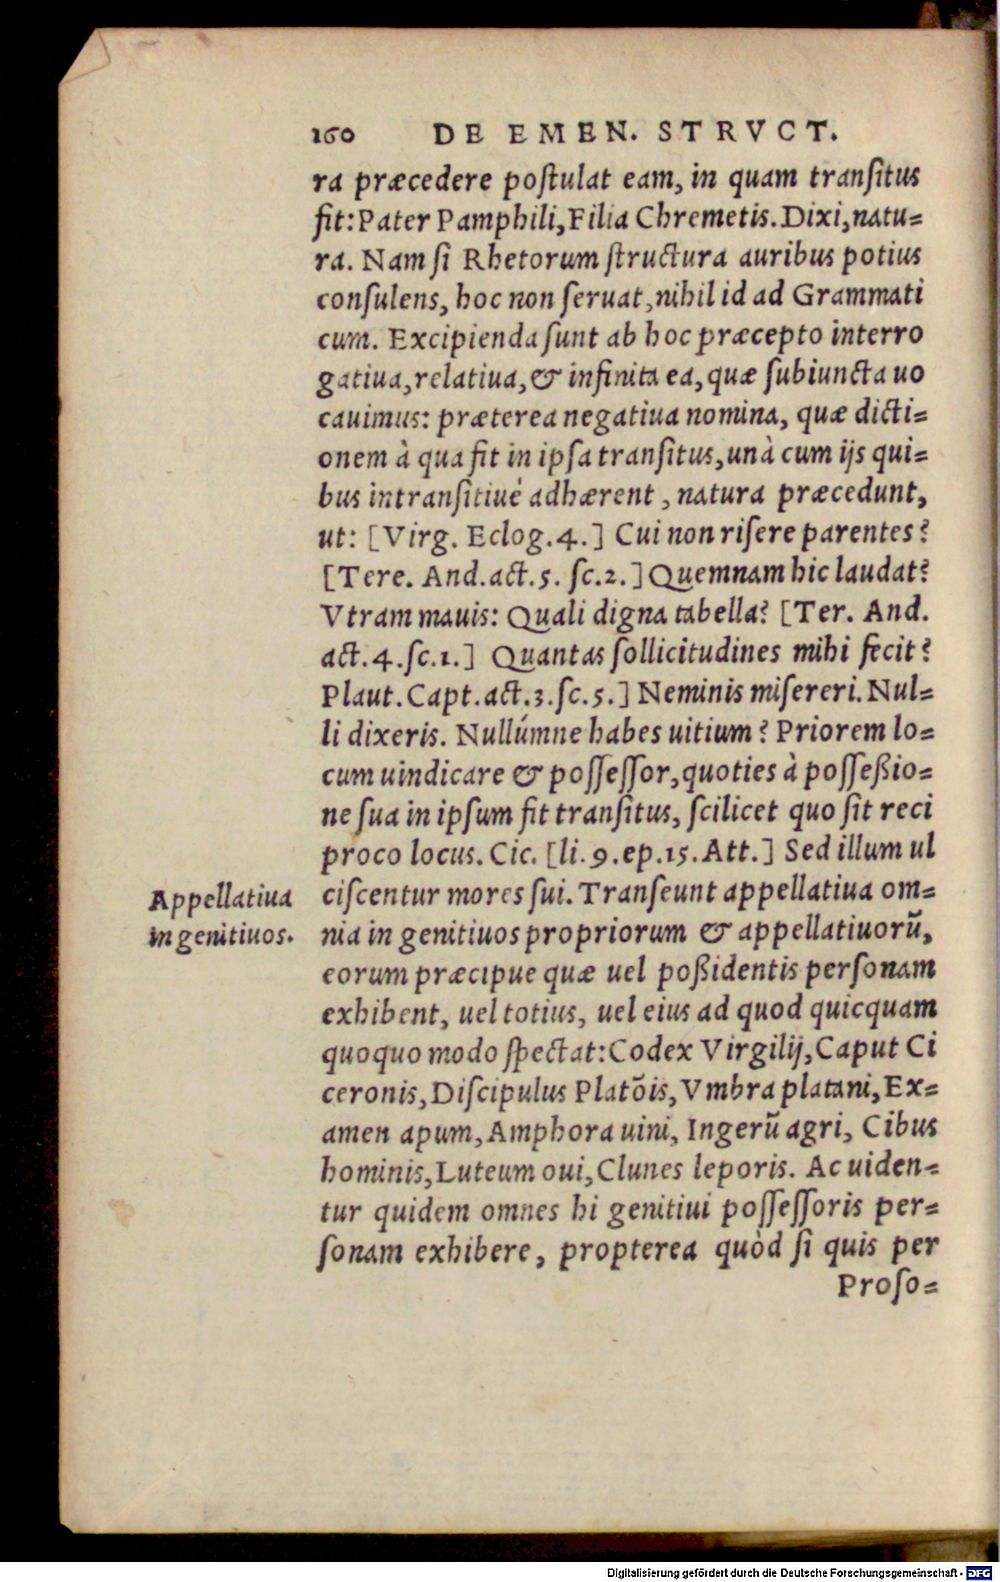 160 DE EMEN. STRVCT.
ra præcedere poſtulat eam, in quam tranſitus
fit: Pater Pamphili, Filia Chremetis. Dixi, natu-
ra. Nam ſi Rhetorum ſtructura auribus potius
conſulens, hoc non ſeruat, nihil id ad Grammati
cum. Excipienda ſunt ab hoc præcepto interro
gatiua, relatiua, & infinita ea, quæ ſubiuncta uo
cauimus: præterea negatiua nomina, quæ dicti-
onem à qua fit in ipſa tranſitus, unà cum ijs qui-
bus intranſitiué adhærent, natura præcedunt,
ut: [Virg. Eclog. 4.] Cui non riſere parentes?
[Tere. And. act. 5. ſc. 2.] Quemnam hic laudat?
Vtram mauis: Quali digna tabella? [Ter. And.
act. 4. ſc. 1.] Quantas ſollicitudines mihi fecit?
Plaut. Capt. act. 3. ſc. 5.] Neminis miſereri. Nul-
li dixeris. Nullúmne habes uitium? Priorem lo-
cum uindicare & poſſeſſor, quoties à poſſeßio-
ne ſua in ipſum fit tranſitus, ſcilicet quo ſit reci
proco locus. Cic. [li. 9. ep. 15. Att.] Sed illum ul
ciſcentur mores ſui. Tranſeunt appellatiua om-
nia in genitiuos propriorum & appellatiuorũ,
eorum præcipue quæ uel poßidentis perſonam
exhibent, uel totius, uel eius ad quod quicquam
quoquo modo ſpectat: Codex Virgilij, Caput Ci
ceronis, Diſcipulus Platõis, Vmbra platani, Ex-
amen apum, Amphora uini, Ingerũ agri, Cibus
hominis, Luteum oui, Clunes leporis. Ac uiden-
tur quidem omnes hi genitiui poſſeſſoris per-
ſonam exhibere, propterea quòd ſi quis per
Proſo-
Appellatiua
in genitiuos.
Digitalisierung gefördert durch die Deutsche Forschungsgemeinschaft - DFG